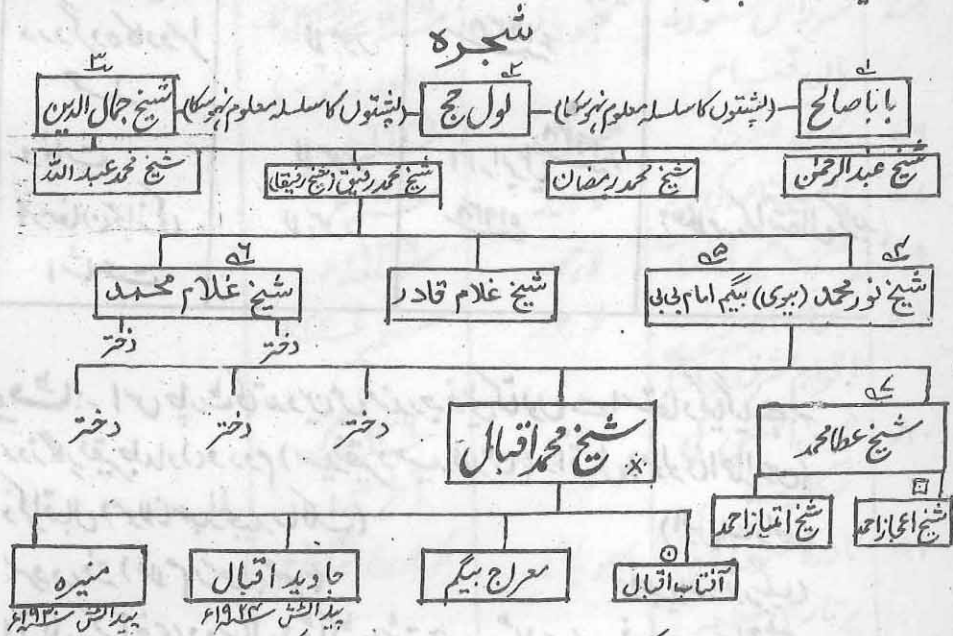 شجرہ
۱ ۲ ۳
بابا صالح – (پشتوں کا سلسلہ معلوم نہو سکا) – لول حج – (پشتوں کا سلسلہ معلوم نہو سکا) – شیخ جمال الدین
شیخ عبدالرحمٰن شیخ محمد رمضان شیخ محمد رفیق (شیخ رفیقا) شیخ محمد عبد اللہ
۴ ۵ ۶
شیخ نور محمد (بیوی) بیگم امام بی بی شیخ غلام قادر شیخ غلام محمد
دختر دختر
۷
شیخ عطا محمد شیخ محمد اقبال دختر دختر دختر
شیخ اعجاز احمد شیخ امتیاز احمد
آفتاب اقبال معراج بیگم جاوید اقبال منیرہ
پیدائش ۱۹۲۴ء پیدائش ۱۹۳۰ء